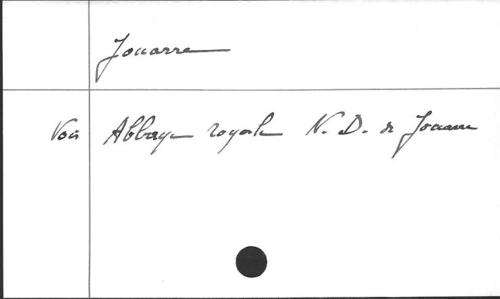 Jouarre
Voir Abbaye royale N. D. de Jouarre